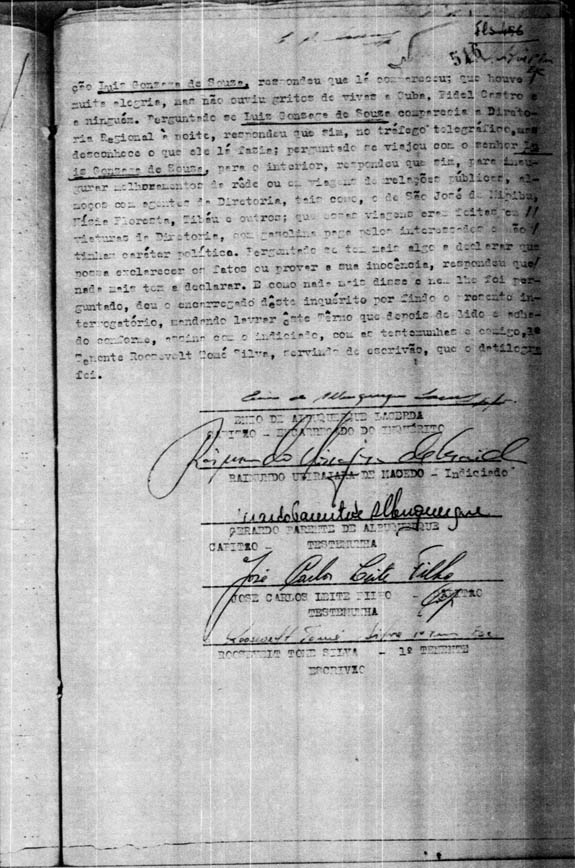 Fls 456
515
ção Luis Gonzaga de Souza, respondeu que lá compareceu; que houve
muita alegria, mas não ouviu gritos de vivas a Cuba, Fidel Castro e
a ninguém. Perguntado se Luiz Gonzaga de Souza comparecia a Direto-
ria Regional à noite, respondeu que sim, no tráfego telegráfico, mas
desconhece o que ele lá fazia; perguntado se viajou com o senhor Lu
is Gonzaga de Souza, para o interior, respondeu que sim, para inau-
gurar melhoramentos da rêde ou em viagens de relações públicas, al-
moços com agentes da Diretoria, tais como, o de São José de Mipibu,
Vícia Floresta, Tibáu e outros; que essas viagens eram feitas em //
viaturas da Diretoria, com gasolina paga pelos interessados e não /
tinham caráter política. Perguntado se tem mais algo a declarar que
possa esclarecer os fatos ou provar a sua inocência, respondeu que/
nada mais tem a declarar. E como nada mais disse e nem lhe foi per-
guntado, deu o encarregado dêste inquérito por findo o presente in-
terrogatório, mandando lavrar êste Têrmo que depois de lido e acha-
do conforme, assina com o indiciado, com as testemunhas e comigo, 1º
Tenente Roosevelt Tomé Silva, servindo de escrivão, que o datilogra
fei.
ENIO DE ALBUQUERQUE LACERDA
CAPITÃO - ENCARREGADO DO INQUÉRITO
RAIMUNDO UBIRAJARA DE MACEDO - Indiciado
GERARDO PARENTE DE ALBUQUERQUE
CAPITÃO - TESTEMUNHA
José Carlos Leite Filho
JOSE CARLOS LEITE FILHO - CAPITÃO
TESTEMUNHA
ROOSEVELT TOME SILVA - 1º TENENTE
ESCRIVÃO